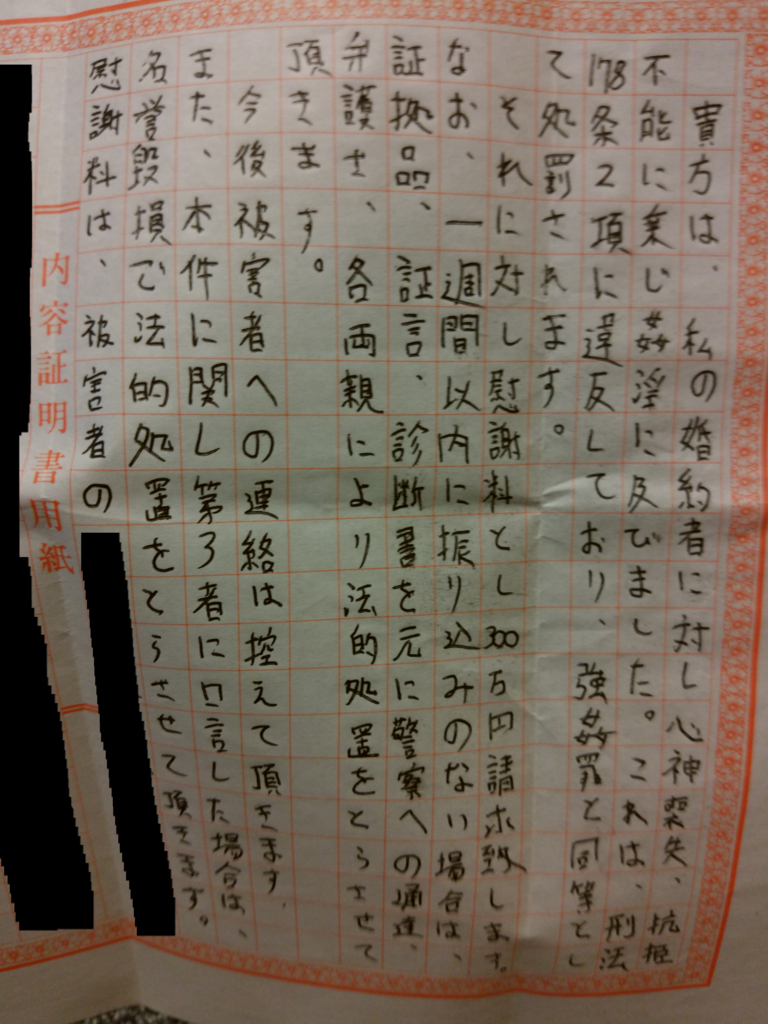 貴方は、私の婚約者に対し心神喪失、抗拒
不能に乗じ姦淫に及びました。これは、刑法
178条2項に違反しており、強姦罪と同等とし
て処罰されます。
それに対し慰謝料とし300万円請求致します。
なお、一週間以内に振り込みのない場合は、
証拠品、証言、診断書を元に警察への通達、
弁護さ、各両親により法的処置をとらさせて
頂きます。
今後被害者への連絡は控えて頂きます。
また、本件に関し第3者に口言した場合は、
名誉毀損で法的処置をとらさせて頂きます。
慰謝料は、被害者の
内容証明書用紙